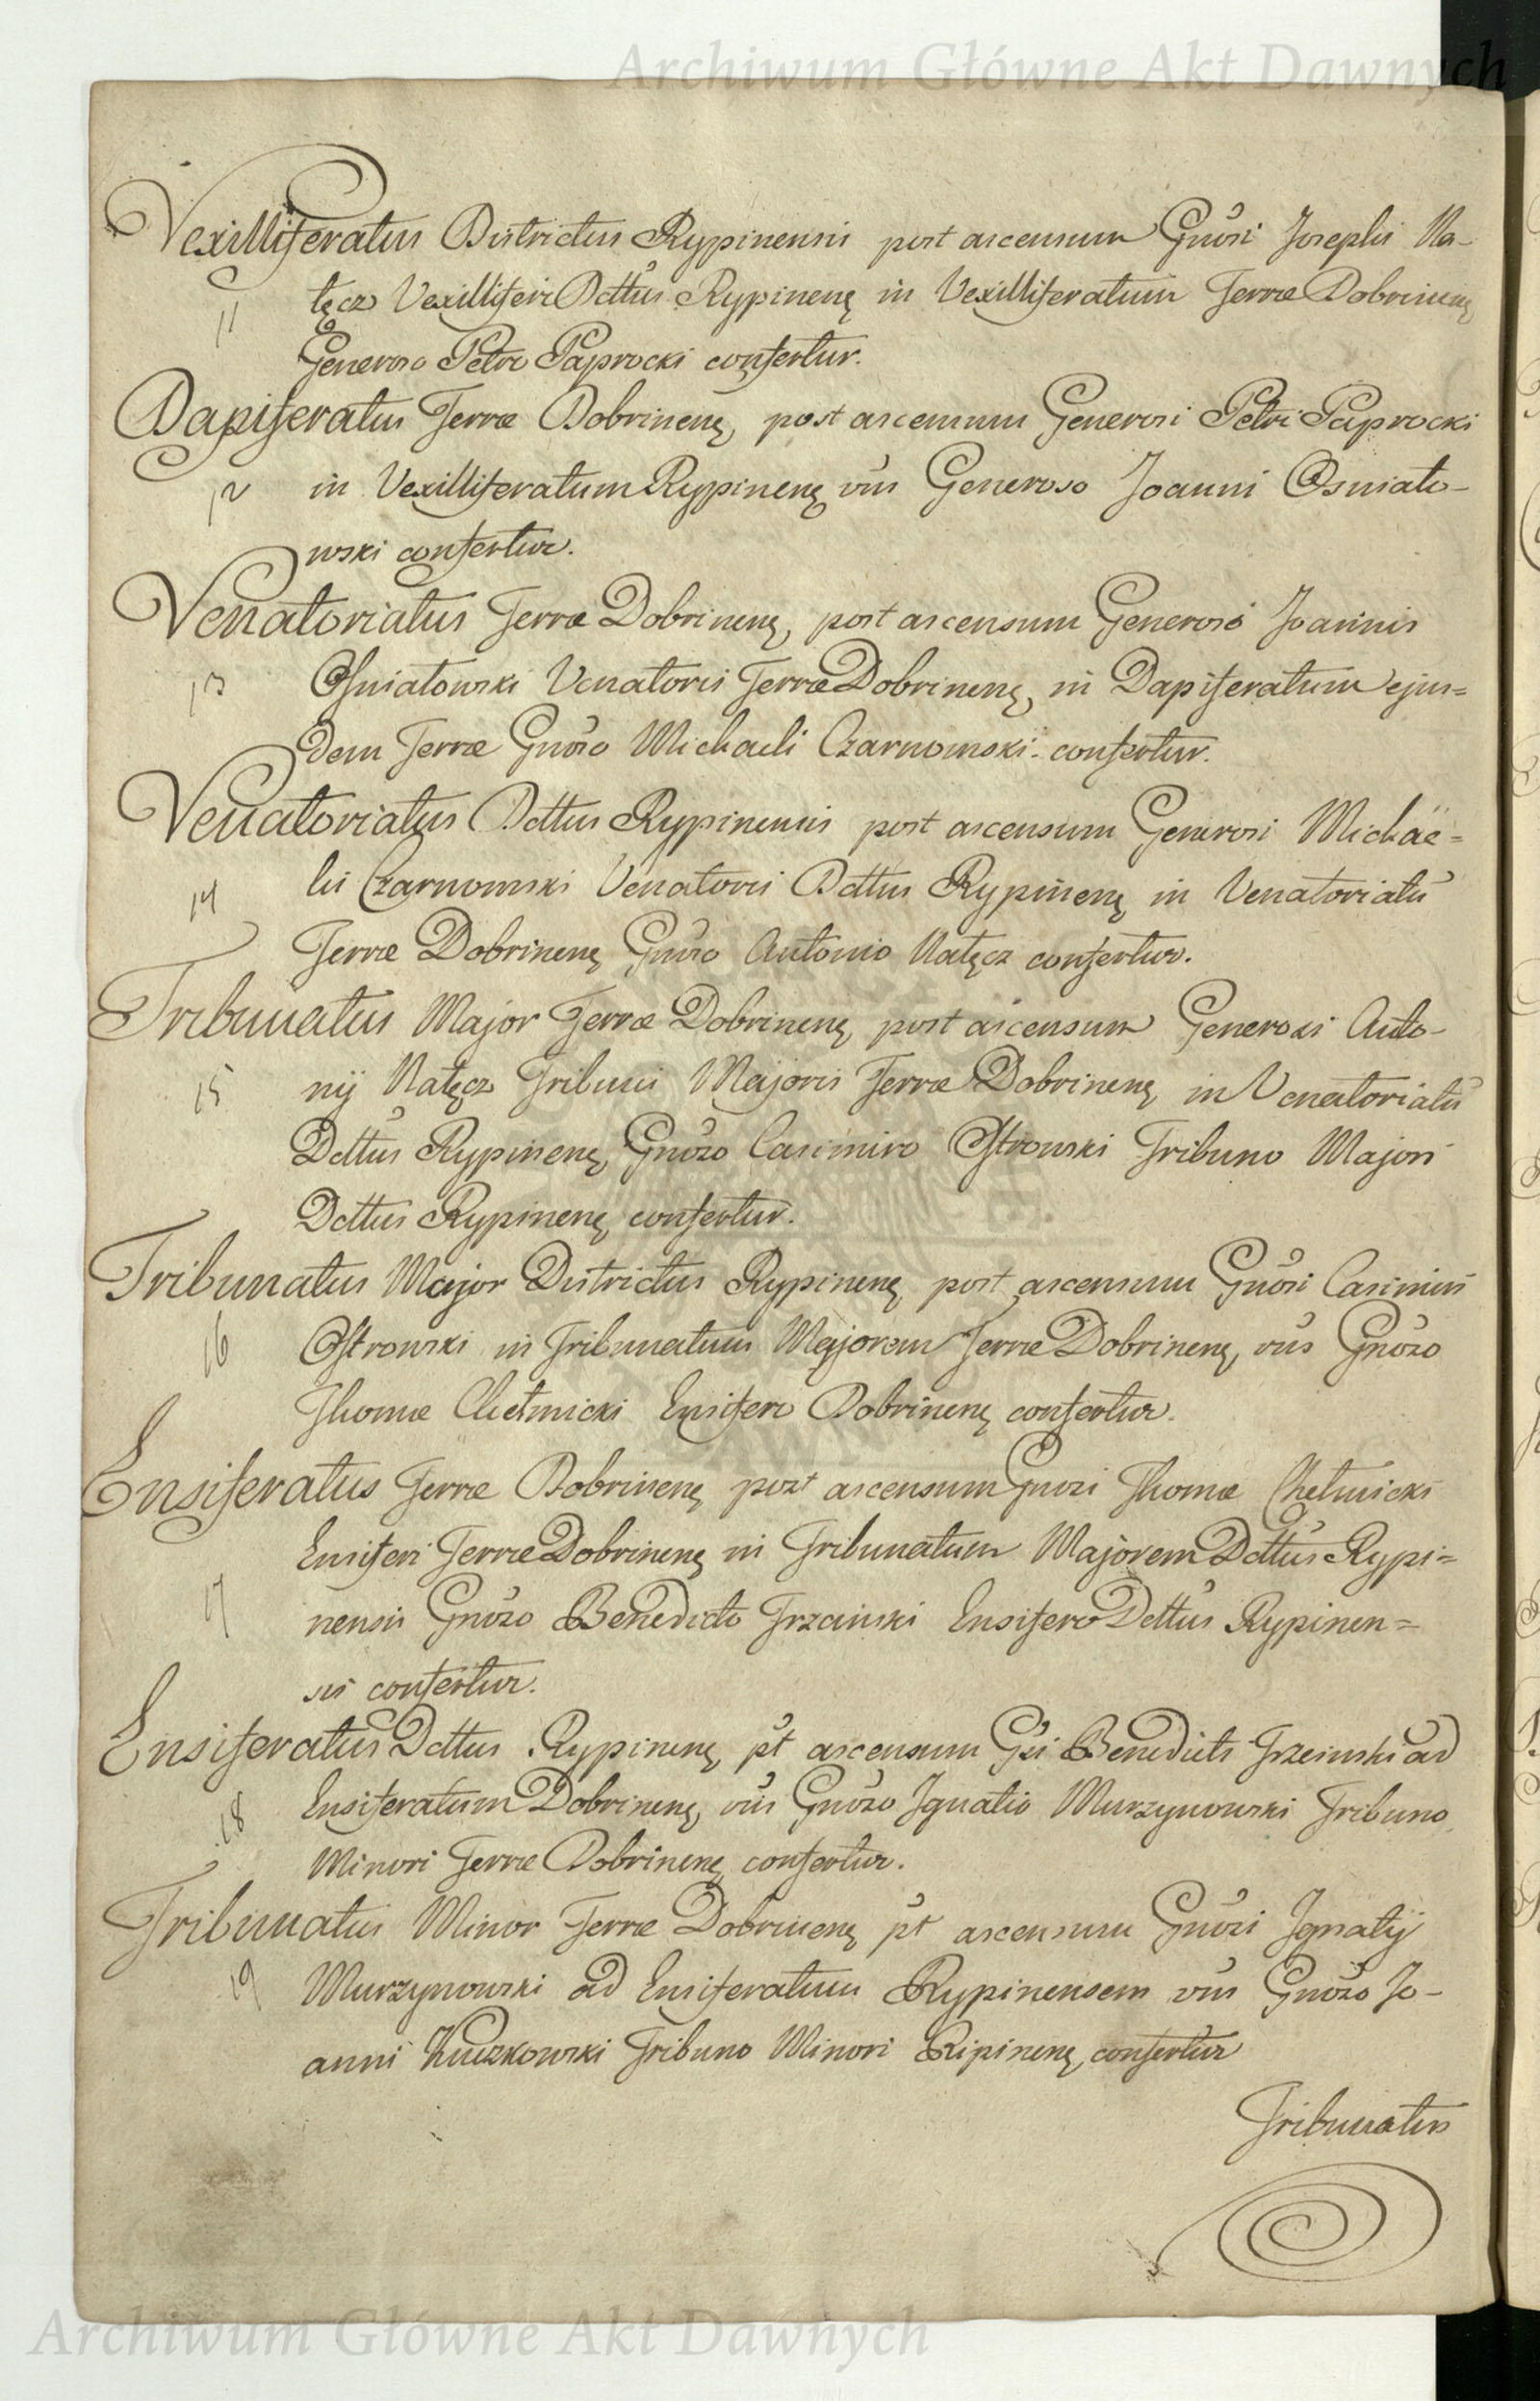 Archiwum Główne Akt Dawnych
Vexilliferatus Districtus Rypinensis post ascensum Gnõsi Josephi Na-
11 łęcz Vexilliferi Dcttus Rypinenę in Vexilliferatum Terræ Dobrinenę
Generoso Petro Paprocki confertur.
Dapiferatus Terræ Dobrinenę, post ascensum Generosi Petri Paprocki
12 in Vexilliferatum Rypinenę vũs Generoso Joanni Osniato-
wski confertur.
Venatoriatus Terræ Dobrinenę, post ascensum Generosi Joannis
13 Osniatowski Venatoris Terræ Dobrinenę, in Dapiferatum ejus=
dem Terræ Gnõso Michaeli Czarnomski confertur.
Venatoriatus Dcttus Rypinensis post ascensum Generosi Michäe=
14 lis Czarnomski Venatoris Dcttus Rypinenę in Venatoriatũ
Terræ Dobrinenę Gnõso Antonio Nałęcz confertur.
Tribunatus Major Terræ Dobrinenę, post ascensum Generosi Anto-
15 nij Nałęcz Tribuni Majoris Terræ Dobrinenę, in Venatoriatũ
Dcttus Rypinenę, Gnõso Casimiro Ostrowski Tribuno Majori
Dcttus Rypinenę confertur.
Tribunatus Major Districtus Rypinenę, post ascensum Gnõsi Casimiri
16 Ostrowski in Tribunatum Majorem Terræ Dobrinenę, vũs Gnõso
Thomæ Chełmicki Ensifero Dobrinenę confertur.
Ensiferatus Terræ Dobrinenę post ascensum Gnosi Thomæ Chełmicki
Ensiferi Terræ Dobrinenę in Tribunatum Majorem Dcttũs Rypi=
17 nensis Gnõso Benedicto Trzcinski Ensifero Dcttũs Rypinen=
sis confertur.
Ensiferatus Dcttus Rypinenę, pt̃ ascensum Gsi Benedicti Trzcinski ad
18 Ensiferatum Dobrinenę, vũs Gnõso Ignatio Murzynowski Tribuno
Minori Terræ Dobrinenę confertur.
Tribunatus Minor Terræ Dobrinenę pt̃ ascensum Gnõsi Ignatij
19 Murzynowski ad Ensiferatum Rypinensem vũs Gnõso Jo-
anni Kuczkowski Tribuno Minori Ripinenę, confertur
Tribunatus
Archiwum Główne Akt Dawnych